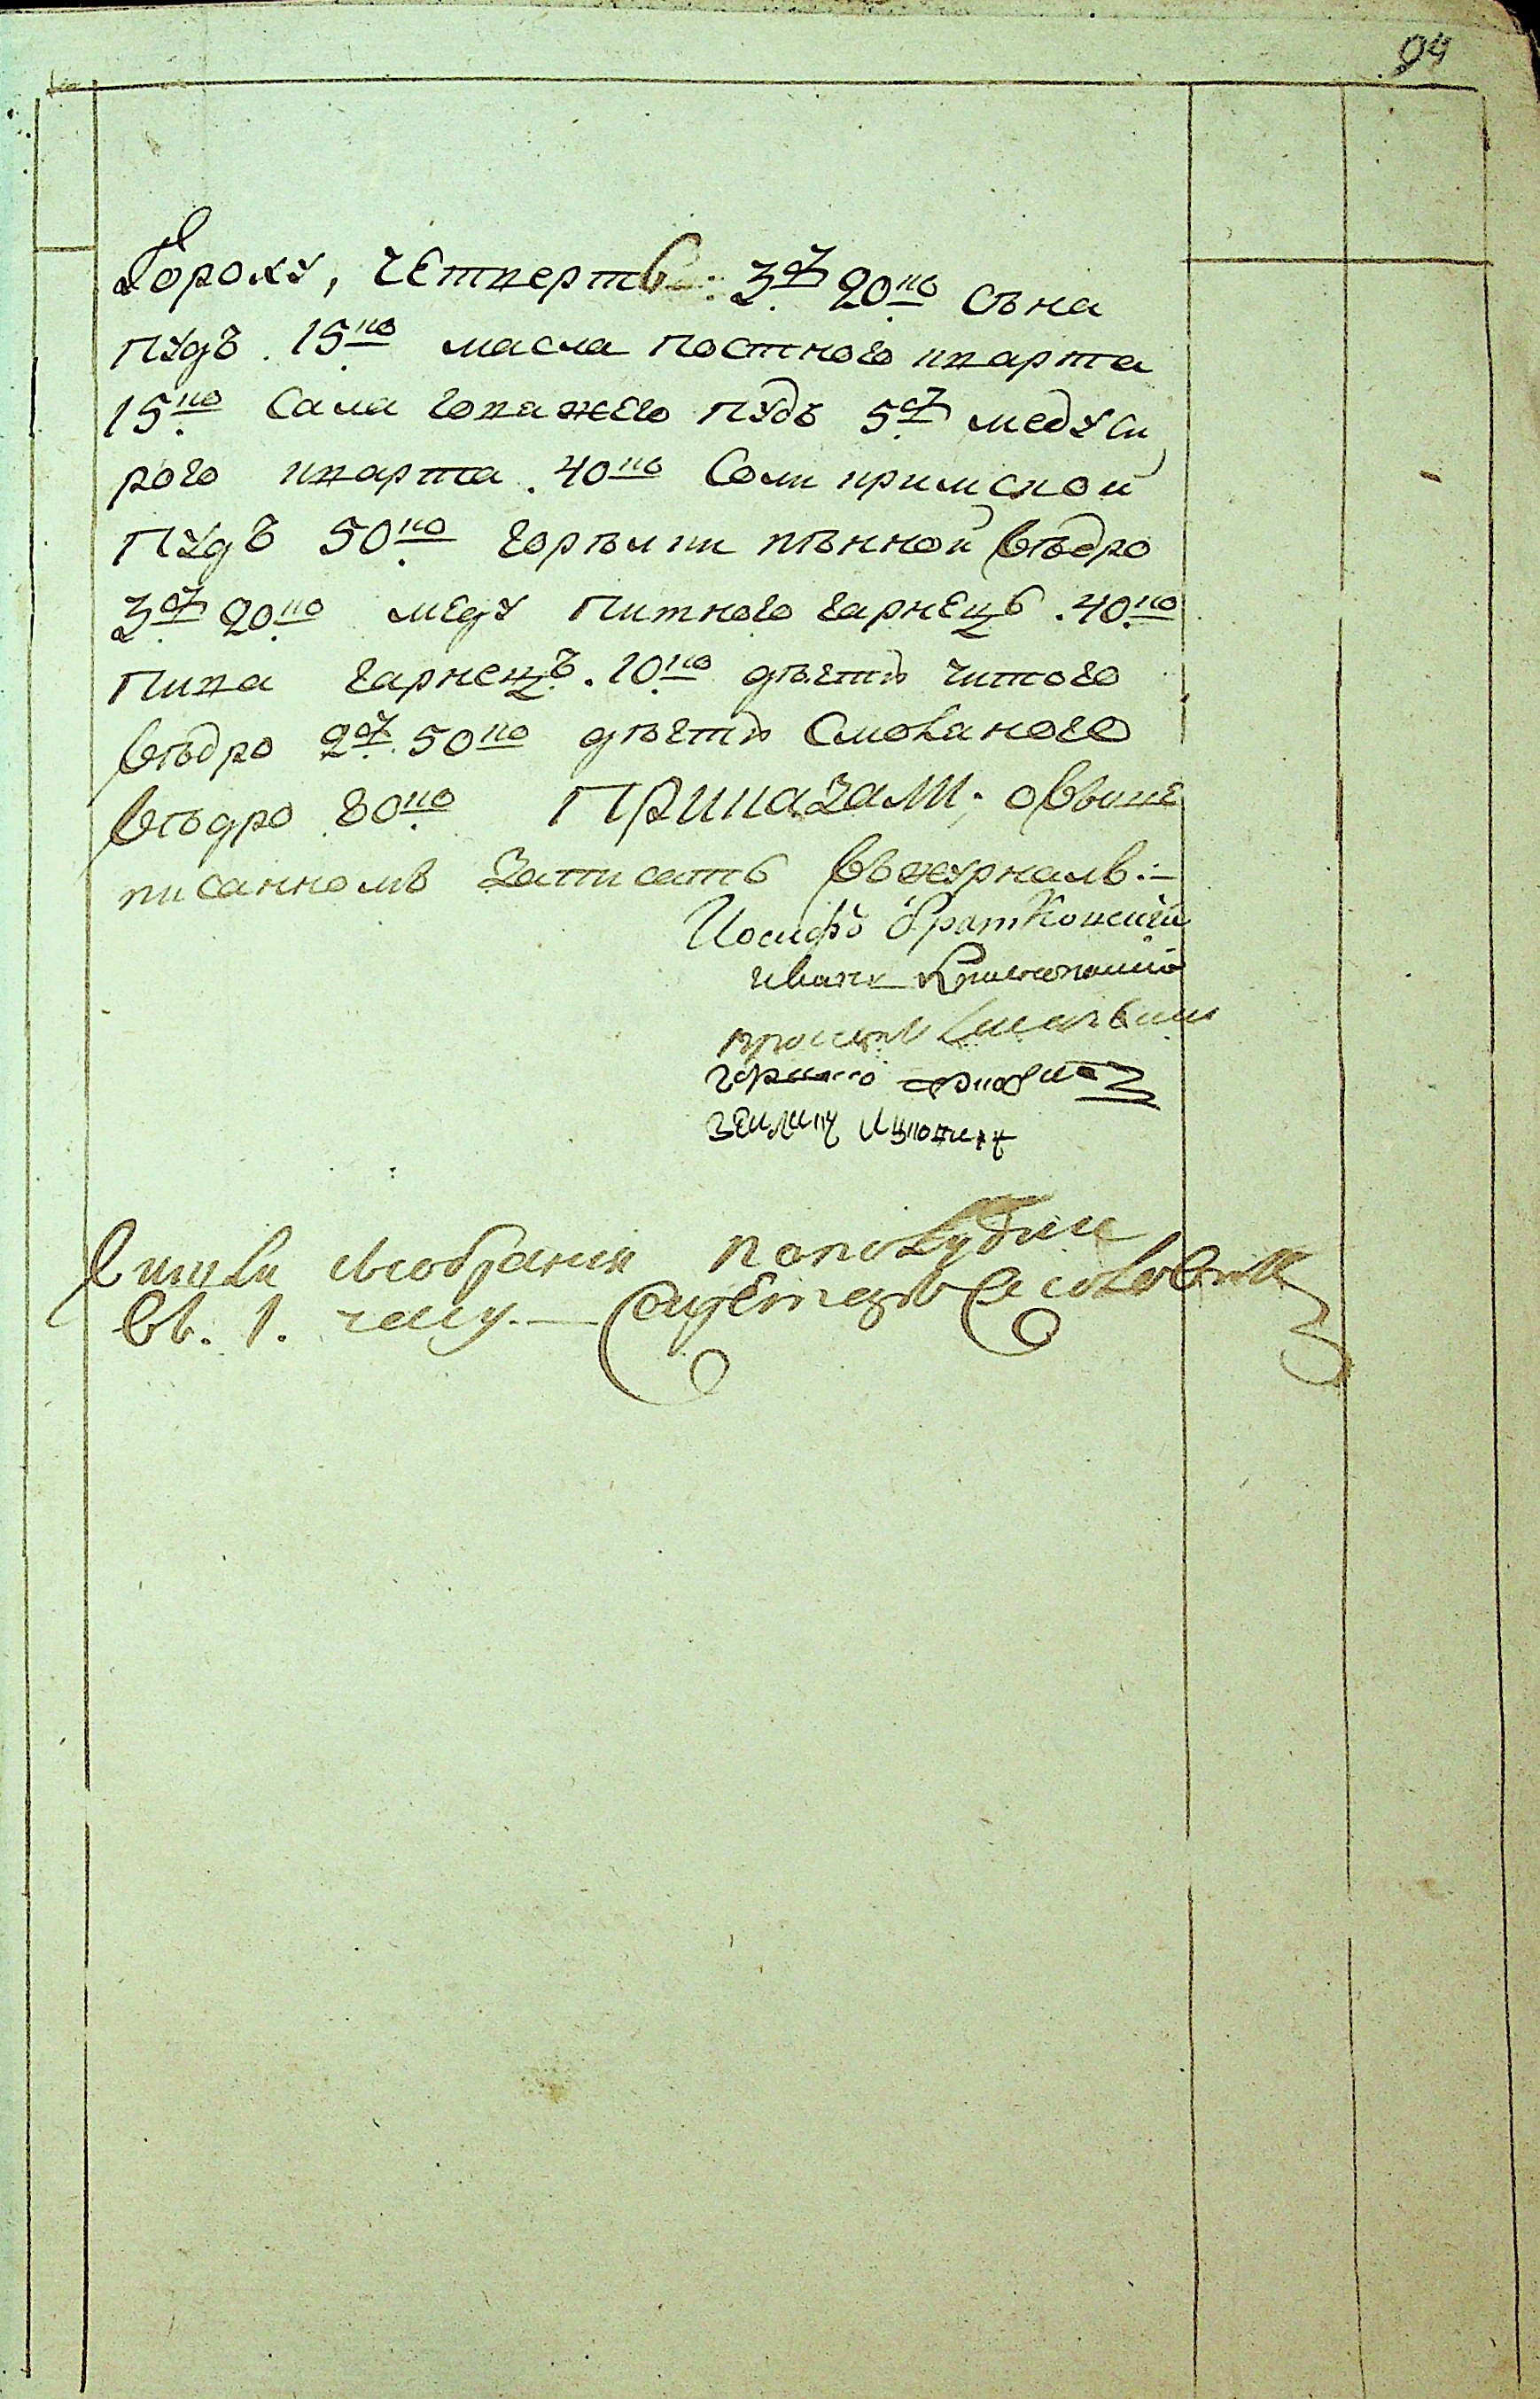 94
Гороху, четверть: 3 ру 20 ко сѣна
пудъ. 15 ко масла постного кварта
15 ко Сала говяжего пудъ 5 ру меду си
рого кварта. 40 ко Соли кримской
пудъ 50 ко горѣлки пѣнной вѣдро
3 ру 20 ко меду питного гарнецъ. 40 ко
пива гарнецъ. 10 ко дѣгтю чистого
вѣдро 2 ру 50 ко дѣгтю смоляного
вѣдро 80 ко Приказали: о выше
писанномъ записать въ журналъ:
Иосифъ Братковский
иванъ
вышли из собрания пополудни
въ. 1. часу.